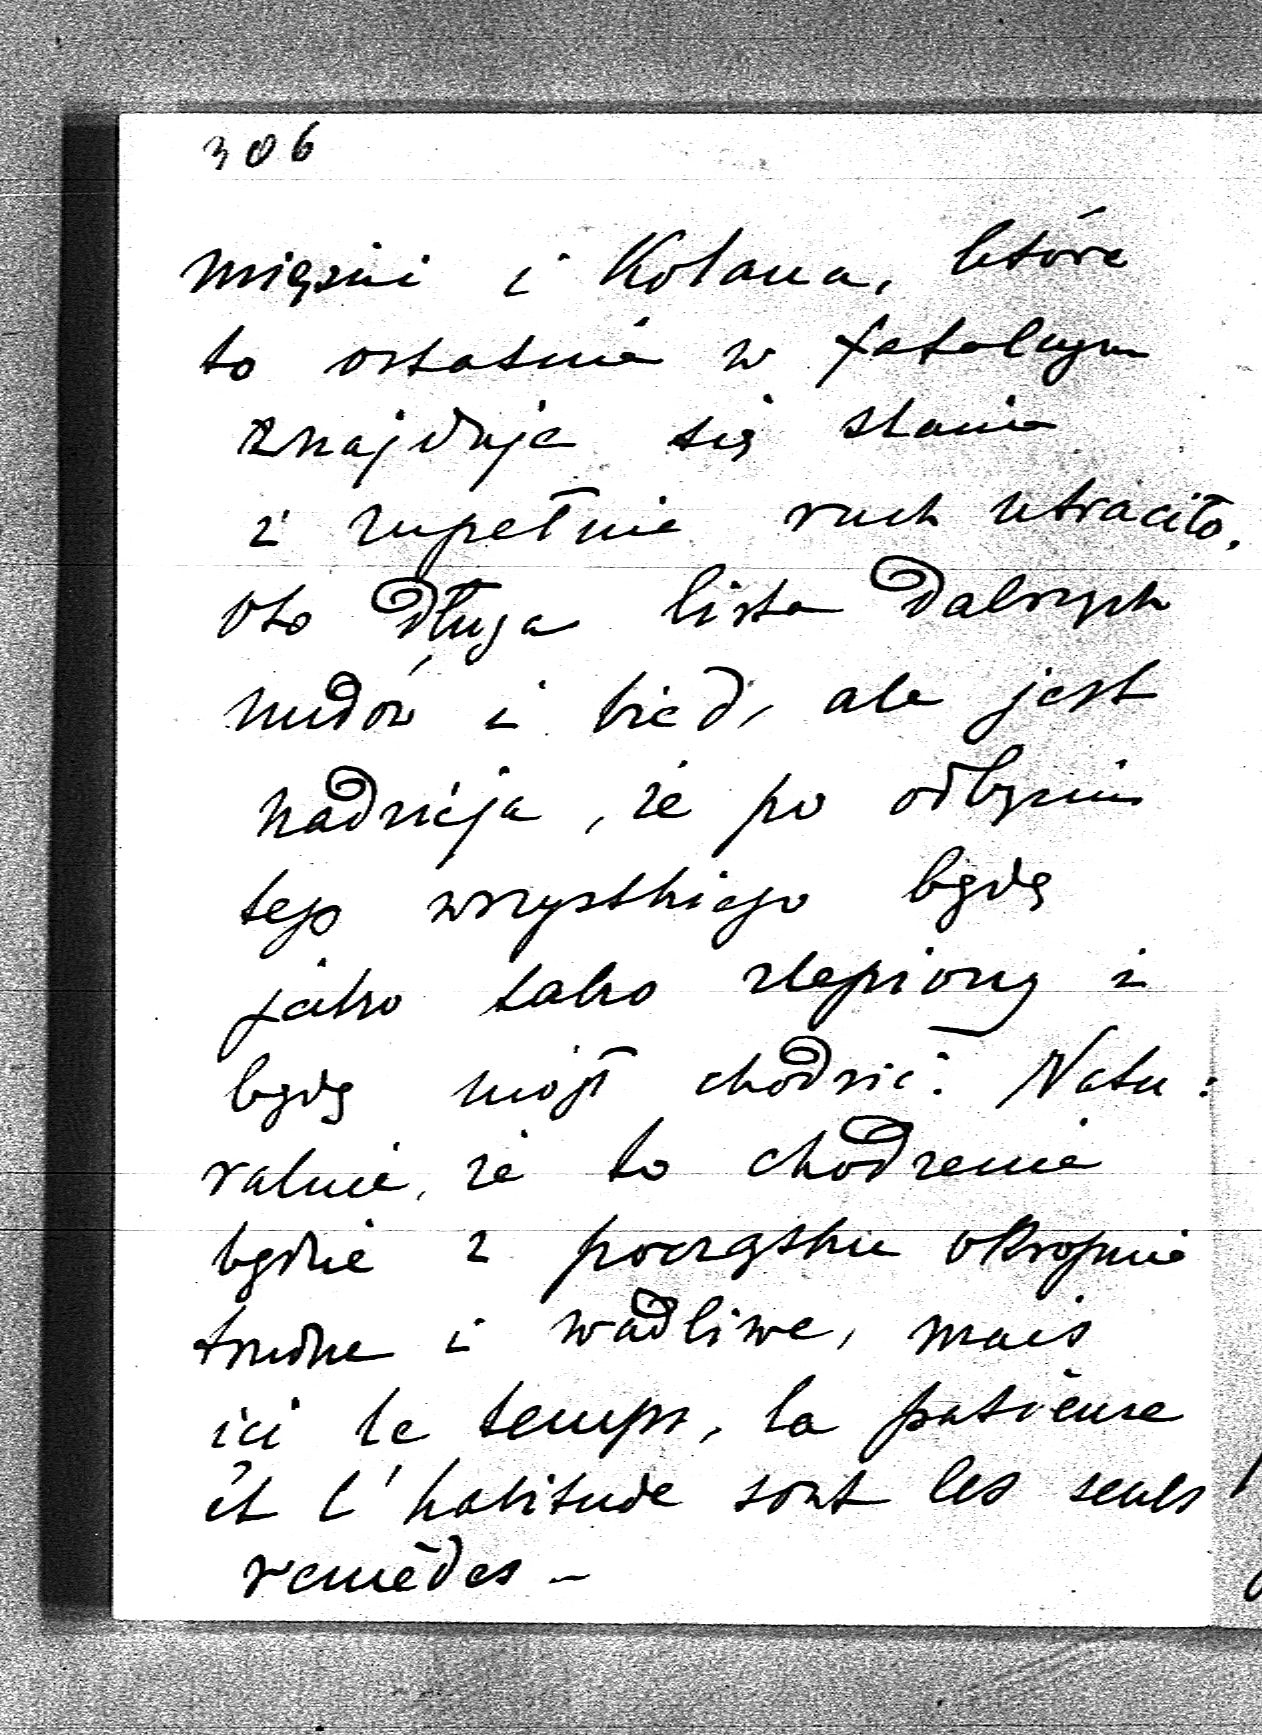 306
mięśni i kolana, które
to ostatnie w fatalnym
znajduje się stanie
i zupełnie ruch utraciło.
Oto długa lista dalszych
nudów i bied, ale jest
nadzieja, że po odbyciu
tego wszystkiego będę
jako tako zlepiony i
będę mógł chodzić. Natu:
ralnie, że to chodzenie
będzie z początku okropnie
trudne i wadliwe, mais
ici le temps, la patience
et l'habitude sont les seuls
remèdes –